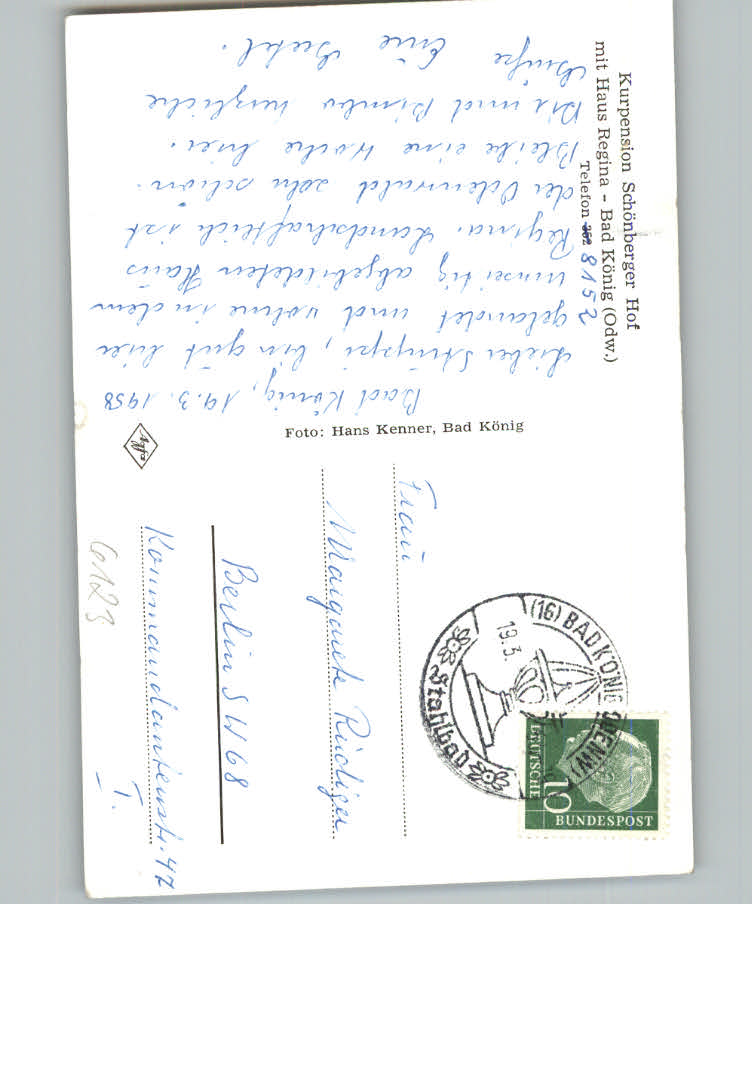 Kurpension Schönberger Hof
mit Haus Regina - Bad König (Odw.)
Telefon 352 8152
Bad König, 19.3.1958
Lieber Struppi, bin gut hier
gelandet und wohne in dem
umseitig abgebildeten Haus
Regina. Landschaftlich ist
der Odenwald sehr schön.
Bleibe eine Woche hier.
Dir und Bimbo herzliche
Grüße Eure
Foto: Hans Kenner, Bad König
Agfa
Frau
Margarete Rüdiger
Berlin SW 68
Kommandantenstr. 47
I.
6123
(16) BAD KÖNIG (ODENW)
19.3.
Stahlbad
DEUTSCHE
BUNDESPOST
10